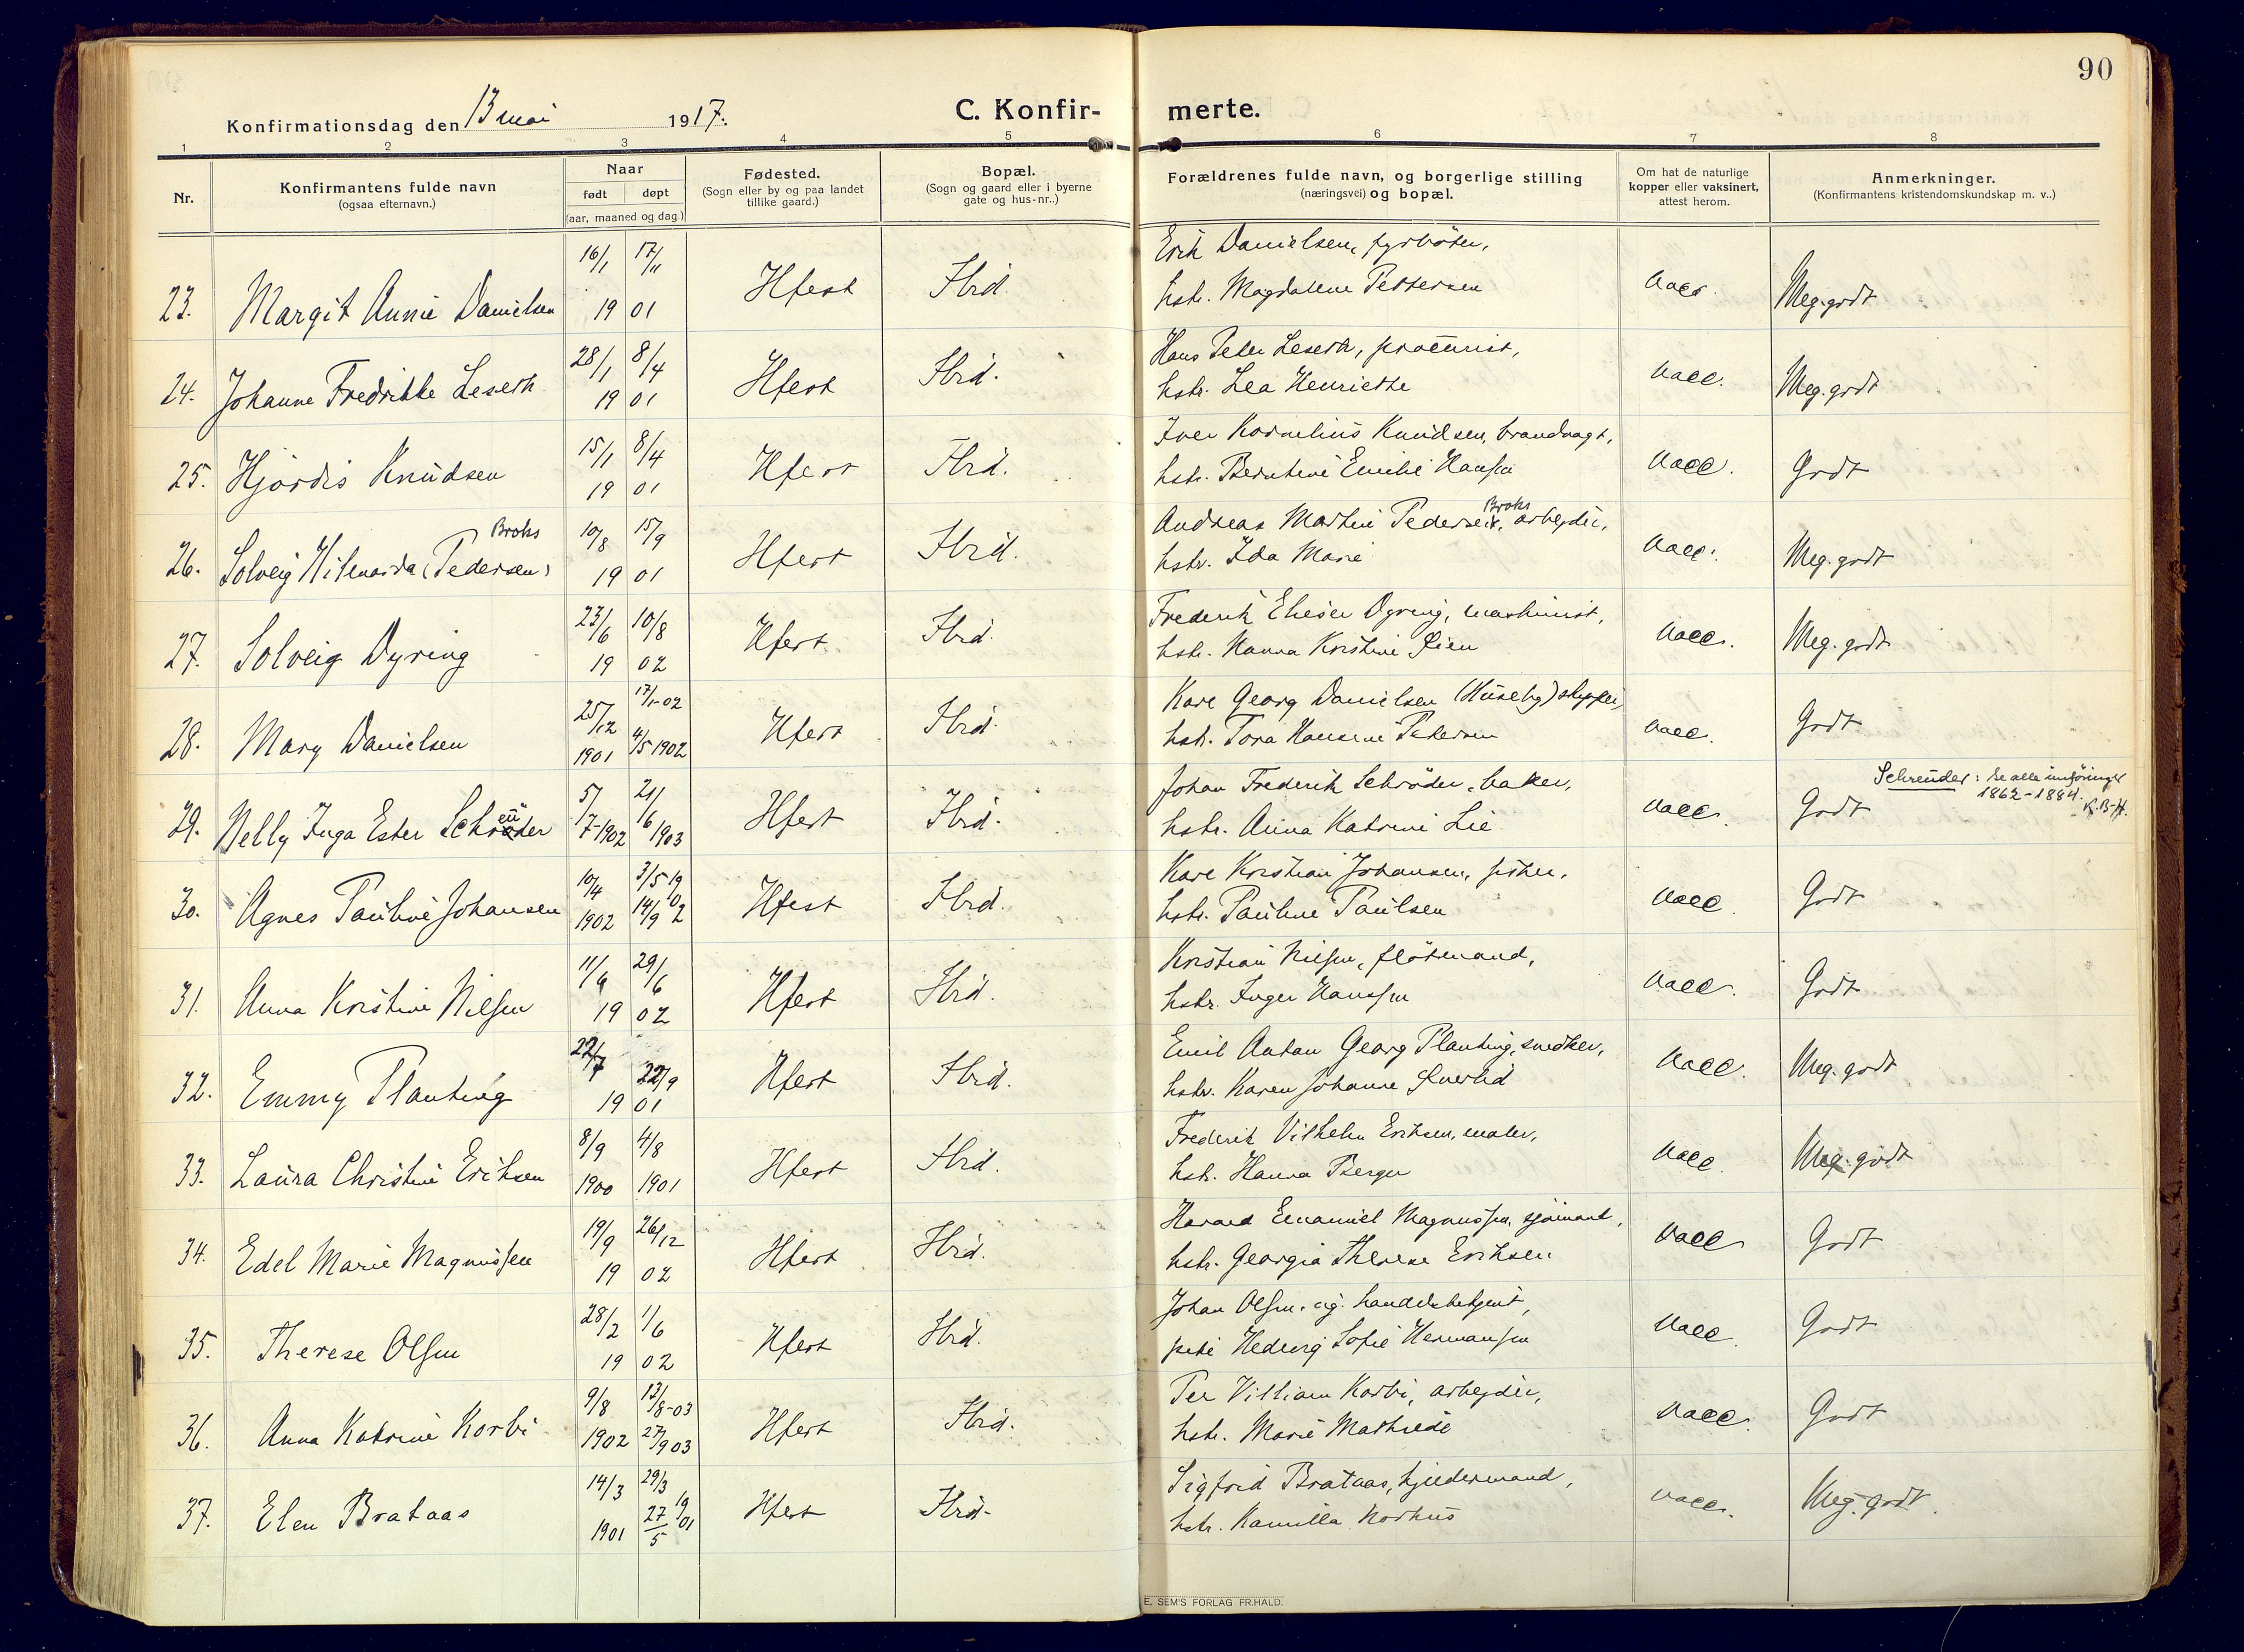 90
Konfirmationsdag den 13 mai 1917. C. Konfirmerte.
1 2 3 4 5 6 7 8
Nr.
Konfirmantens fulde navn
(ogsaa efternavn.)
Naar
født døpt
(aar, maaned og dag.)
Fødested.
(Sogn eller by og paa landet
tillike gaard.)
Bopæl.
(Sogn og gaard eller i byerne
gate og hus-nr..)
Forældrenes fulde navn, og borgerlige stilling
(næringsvei) og bopæl.
Om hat de naturlige
kopper eller vaksinert,
attest herom.
Anmerkninger.
(Konfirmantens kristendomskundskap m. v..)
16/1 17/11 Erik Danielsen, fyrbøter,
23. Margit Annie Danielsen 19 01 Hfest Hrd. hstr. Magdalene Pettersen vacc. Meg. godt
28/1 8/4 Hans Peter Leseth, procurist,
24. Johanne Fredrikke Leseth 19 01 Hfest Hrd. hstr. Lea Henriette vacc. Meg. godt
15/1 8/4 Iver Kornelius Knudsen, brandvagt,
25. Hjördis Knudsen 19 01 Hfest Hrd. hstr. Berntine Emilie Hansen vacc. Godt
Broks 10/8 15/9 Andreas Martin Pedersen, Broks arbejder,
26. Solveig (Pedersen) 19 01 Hfest Hrd. hstr. Ida Marie vacc. Meg. godt
23/6 10/8 Frederik Elieser Dyring, maskinist,
27. Solveig Dyring 19 02 Hfest Hrd. hstr. Hanna Kristine Öien vacc. Meg. godt
25/12 17/1-02 Kare Georg Danielsen (Huseby) skipper,
28. Mary Danielsen 1901 4/5 1902 Hfest Hrd. hstr. Tora Hansine Pedersen vacc. Godt
5/ 21/ Johan Frederik Schröder, baker, Schreuder: se alle innføringer
1862-1884. K.B-H.
29. Nelly Inga Ester Schreuder 7-1902 6 1903 Hfest Hrd. hstr. Anna Katrine Lie vacc. Godt
10/4 3/5 19 Kare Kristian Johansen, fisker,
30. Agnes Pauline Johansen 1902 14/9 02 Hfest Hrd. hstr. Pauline Paulsen vacc. Godt
29/6 Kristian Nilsen, flötmand,
31. Anna Kristine Nilsen 19 02 Hfest Hrd. hstr. Inger Hanssen vacc. Godt
22/7 22/9 Emil Anton Georg Planting, snedker,
32. Emmy Planting 19 01 Hfest Hrd. hstr. Karen Johanne vacc. Meg. godt
8/9 4/8 Frederik Vilhelm Eriksen, maler,
33. Laura Christine Eriksen 1900 1901 Hfest Hrd. hstr. Hanna Berger vacc. Meg. godt
19/9 26/12 Harald Emanuel Magnussen, sjömand,
34. Edel Marie Magnussen 19 02 Hfest Hrd. hstr. Georgia Therese Eriksen vacc. Godt
28/2 1/6 Johan Olsen, handelsbetjent,
35. Therese Olsen 19 02 Hfest Hrd. pike Hedvig Sofie Hermansen vacc. Godt
9/8 13/8-03 Per Villiam Korbi, arbejder,
36. Anna Katrine Korbi 1902 27/9 03 Hfest Hrd. hstr. Marie Mathilde vacc. Godt
14/3 29/3 Sigfrid Brataas, kjudermand,
37. Elen Brataas 1901 27/5 1901 Hfest Hrd. hstr. Kamilla Korhus vacc. Meg. godt.
E. SEM'S FORLAG FR.HALD.